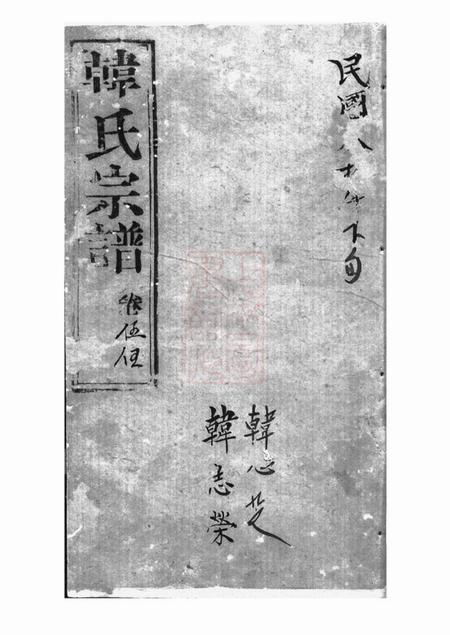 民國八十年下旬
韓心芝
韓志榮
韓氏宗譜
卷伍